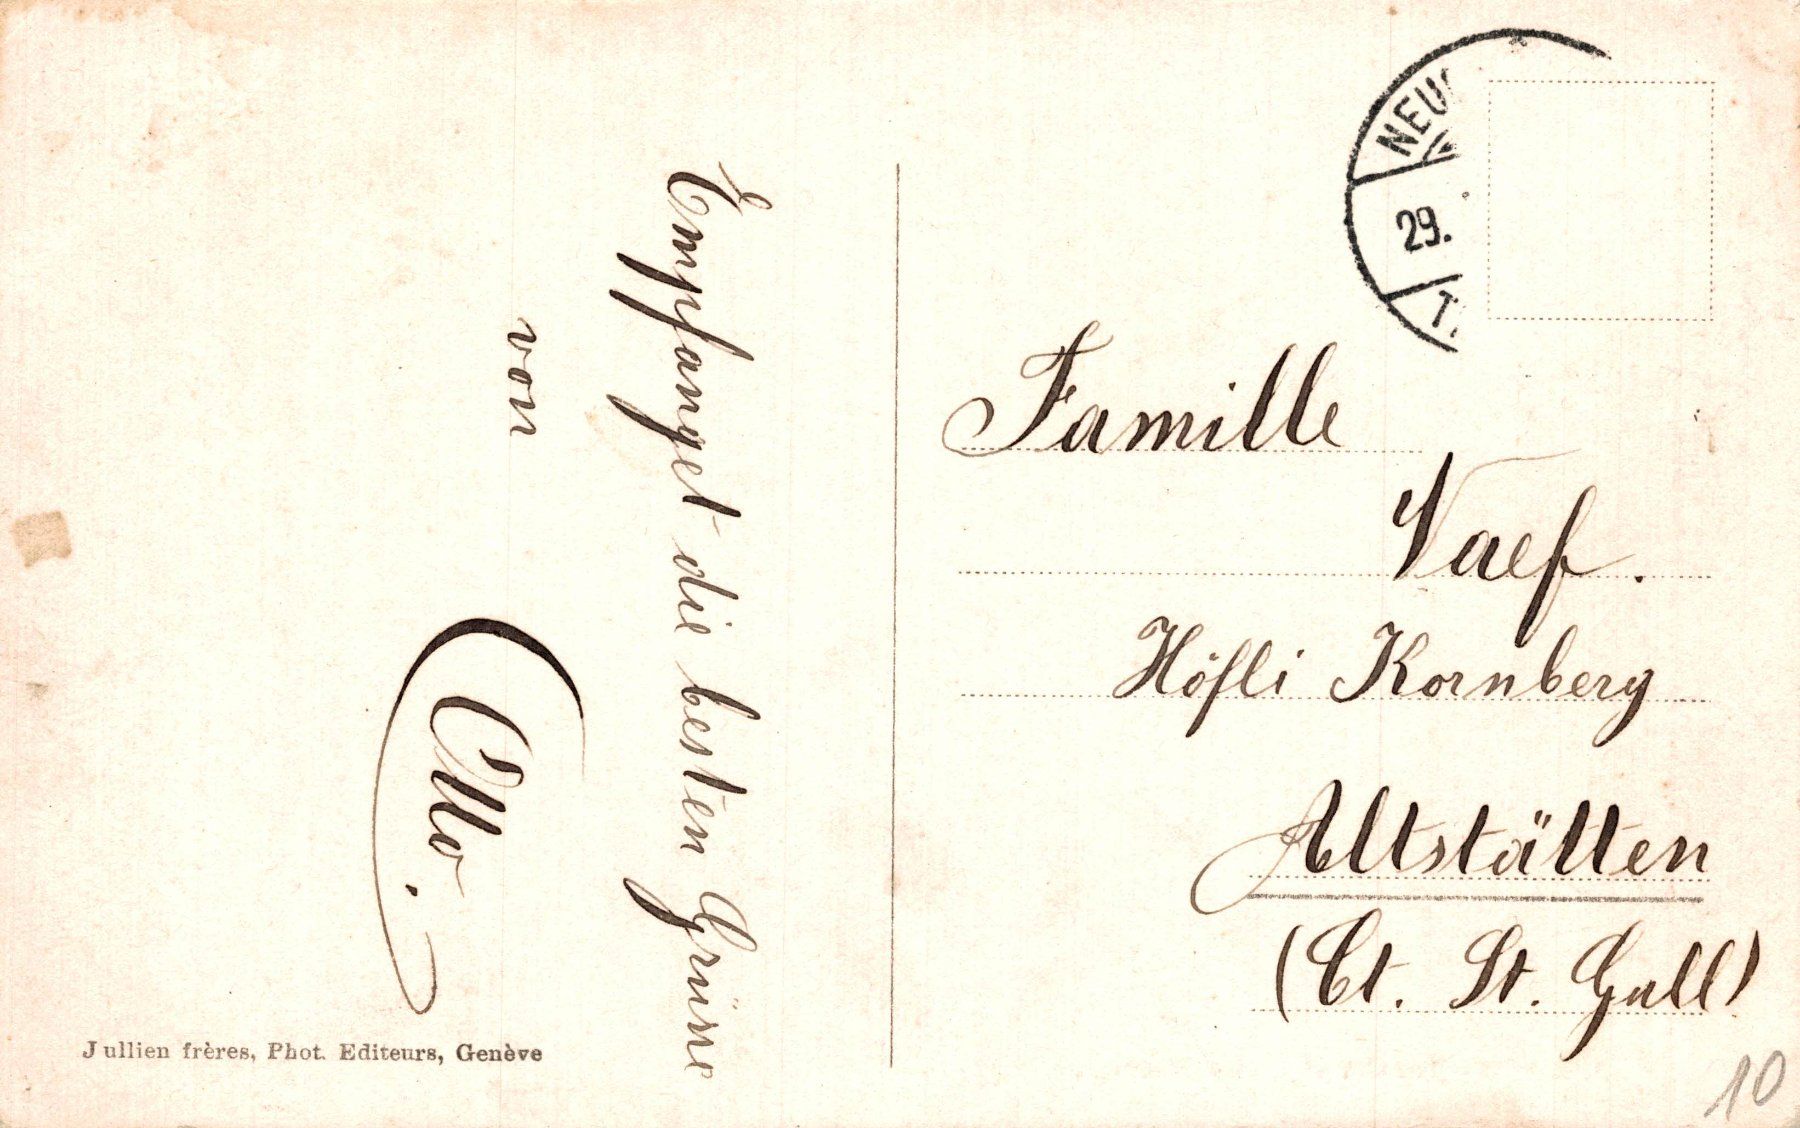 Empfanget die besten Grüsse
von
Otto.
Jullien frères, Phot. Editeurs, Genève
NEU
29.
T.
Famille
Vaef.
Höfli Kornberg
Altstätten
(Ct. St. Gall)
10